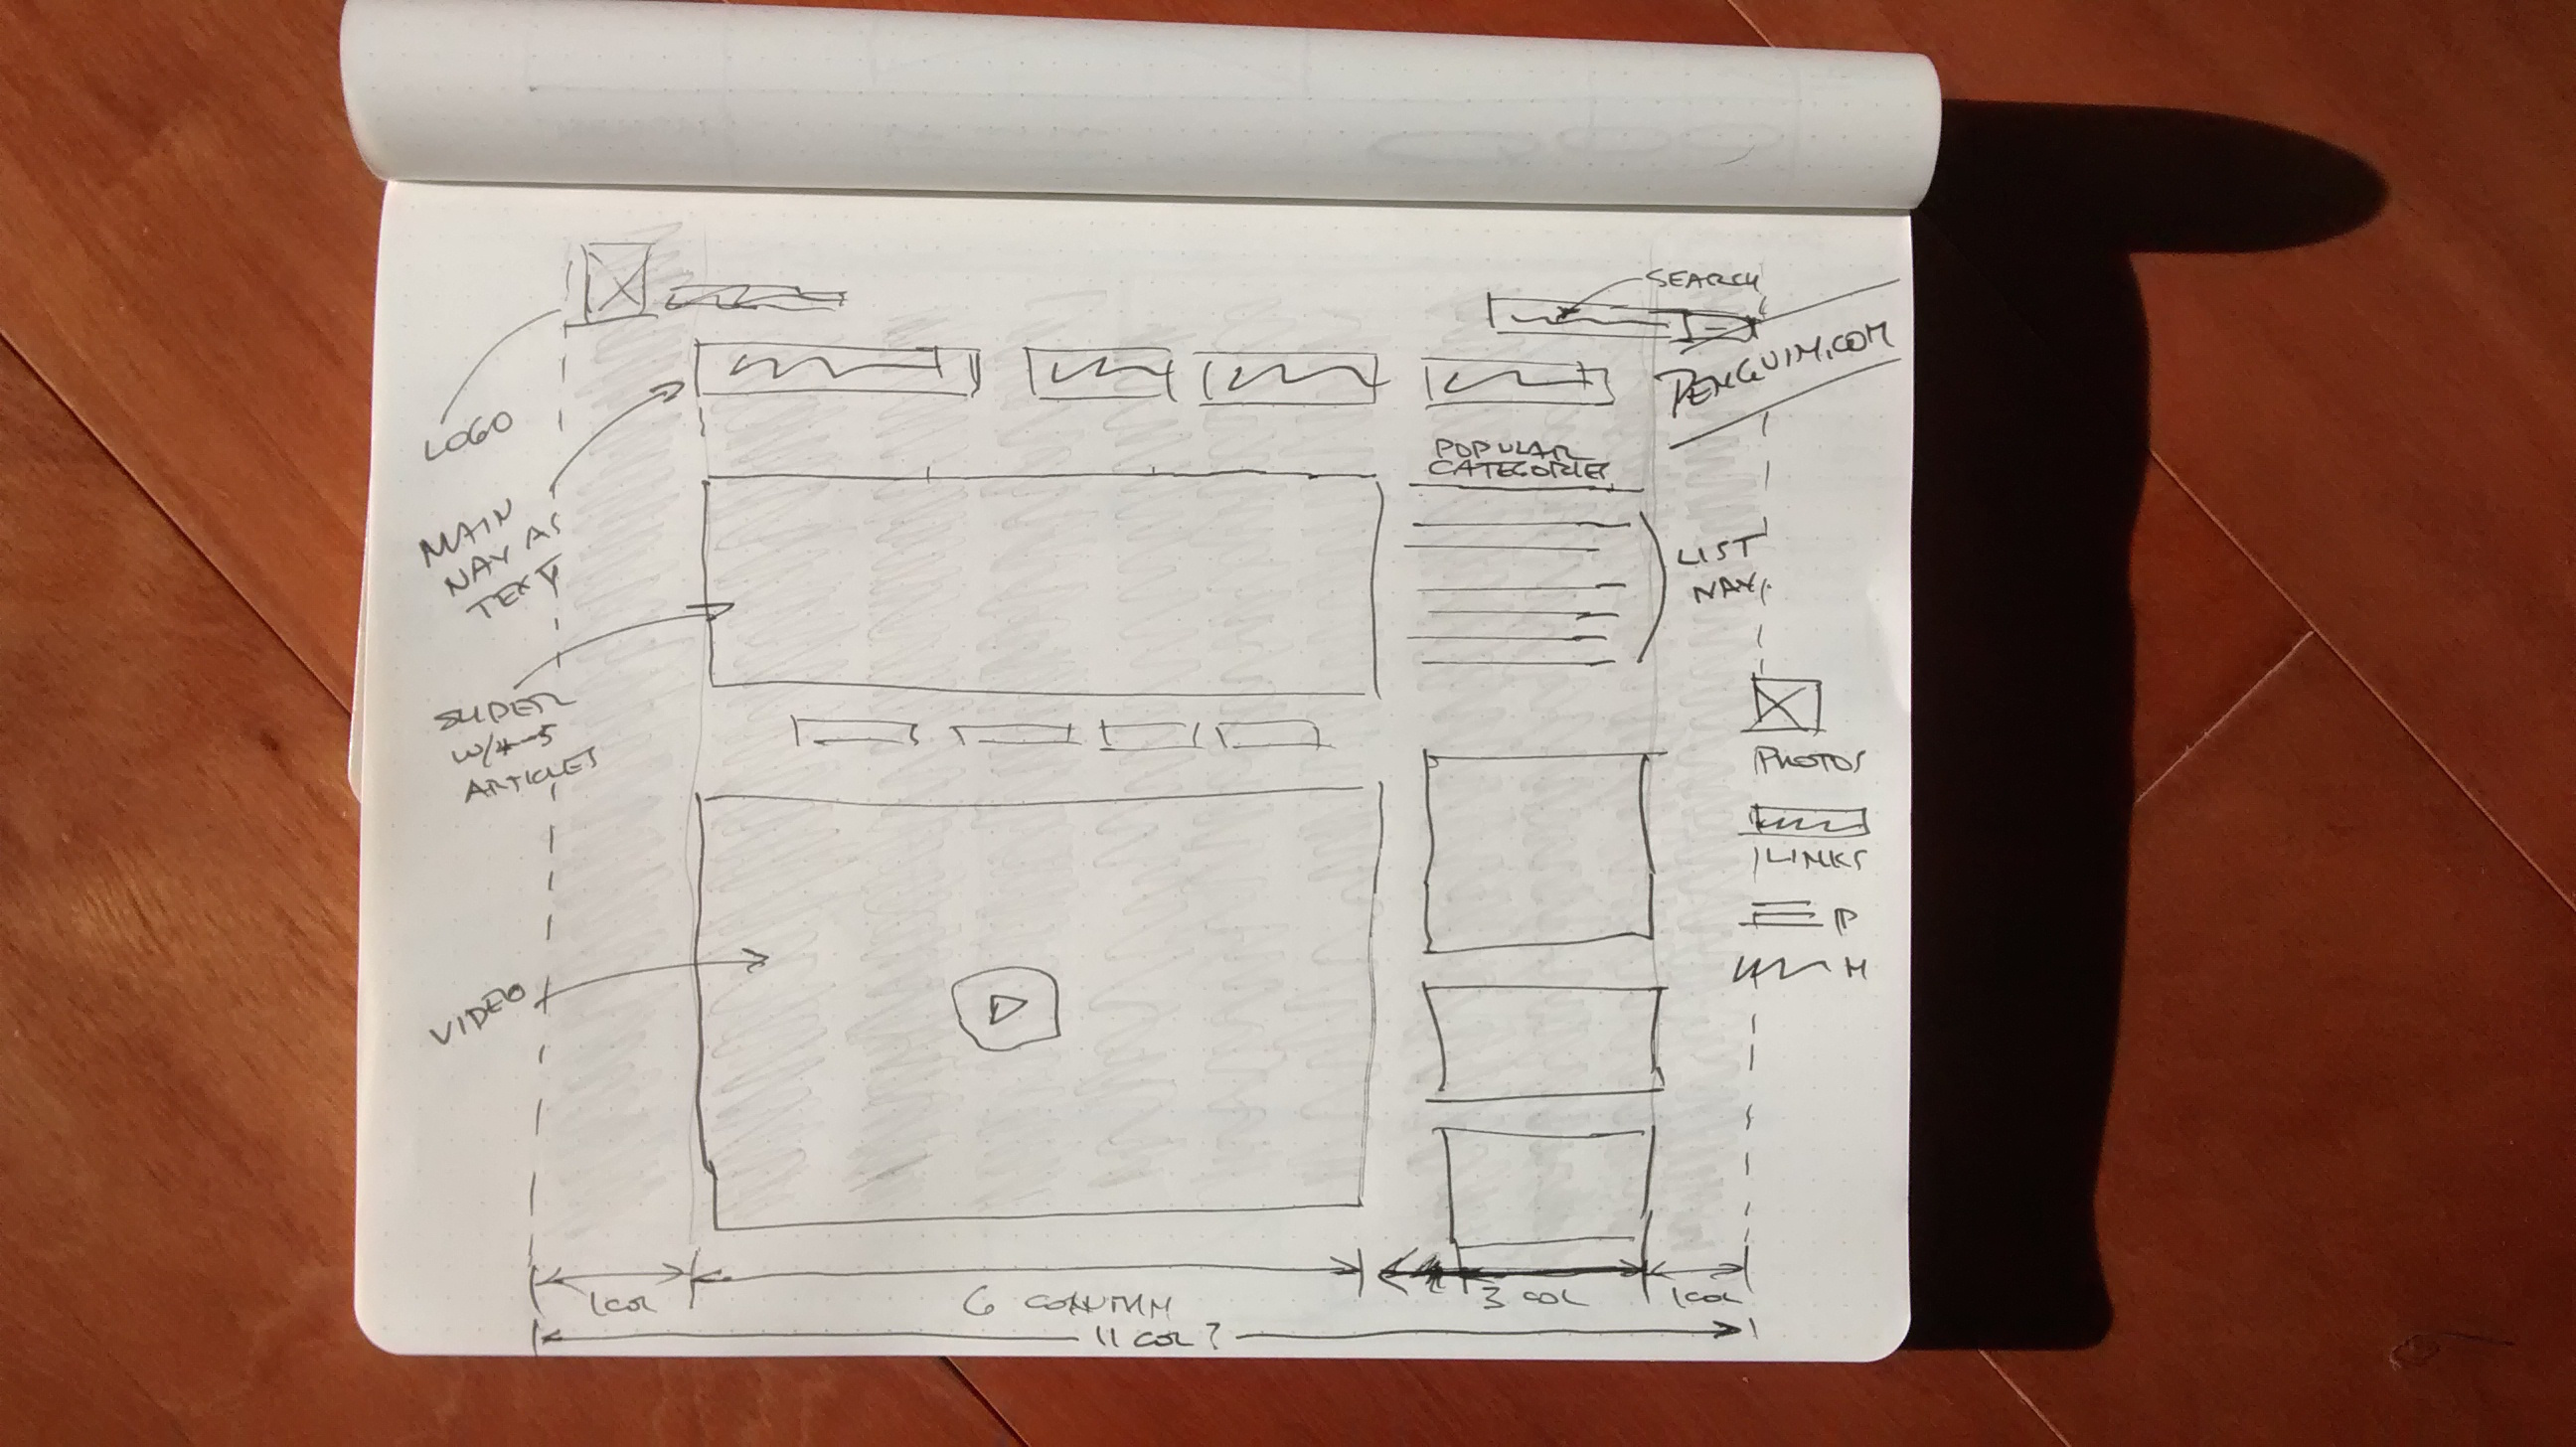 SEARCH
PENGUIN.COM
LOGO
MAIN
NAV AS
TEXT
POPULAR
CATEGORIES
LIST
NAV.
SLIDER
ARTICLES
PHOTOS
LINKS
P
H
VIDEO
1 COL
6 COLUMN
3 COL
1 COL
11 COL?